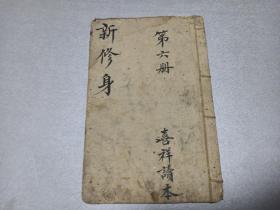 新修身
第六册
喜祥讀本